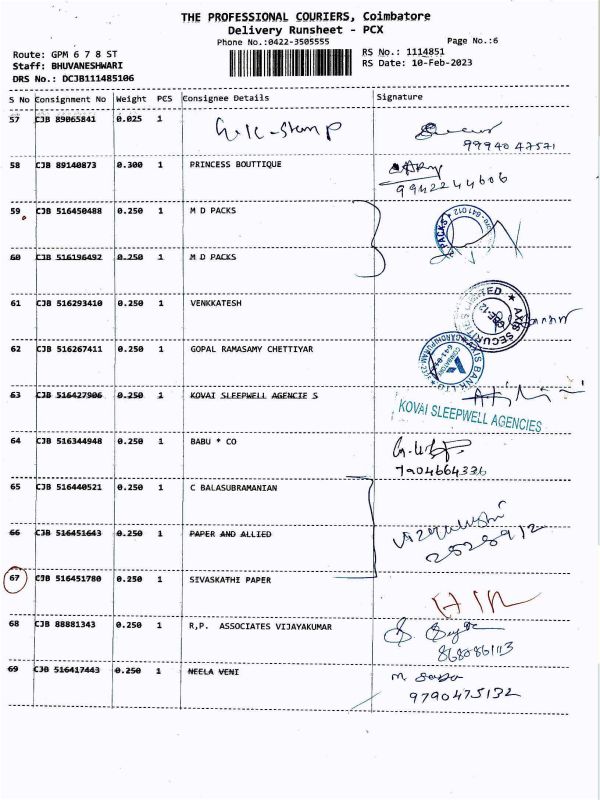 THE PROFESSIONAL COURIERS, Coimbatore
Delivery Runsheet - PCX
Phone No.:0422-3505555
Page No.:6
Route: GPM 6 7 8 ST
Staff: BHUVANESHWARI
DRS No.: DCJB111485106
RS No.: 1114851
RS Date: 10-Feb-2023
S No Consignment No Weight PCS Consignee Details Signature
57 CJB 89065841 0.025 1
9994047571
58 CJB 89140873 0.300 1 PRINCESS BOUTTIQUE
9942244606
59 CJB 516450488 0.250 1 M D PACKS
60 CJB 516196492 0.250 1 M D PACKS
61 CJB 516293410 0.250 1 VENKKATESH
AXIS SECURITIES LIMITED
62 CJB 516267411 0.250 1 GOPAL RAMASAMY CHETTIYAR
63 CJB 516427906 0.250 1 KOVAI SLEEPWELL AGENCIE S
KOVAI SLEEPWELL AGENCIES
64 CJB 516344948 0.250 1 BABU * CO
7904664336
65 CJB 516440521 0.250 1 C BALASUBRAMANIAN
66 CJB 516451643 0.250 1 PAPER AND ALLIED
2528912
67 CJB 516451780 0.250 1 SIVASKATHI PAPER
68 CJB 88881343 0.250 1 R,P. ASSOCIATES VIJAYAKUMAR
69 CJB 516417443 0.250 1 NEELA VENI
9790475132